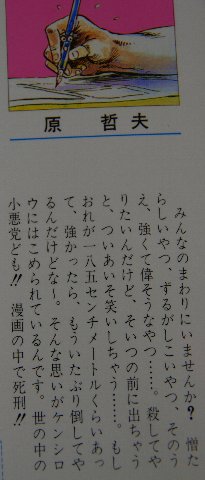 原 哲夫
みんなのまわりにいませんか? 憎た
らしいやつ、ずるがしこいやつ、そのう
え、強くて偉そうなやつ……。殺してや
りたいんだけど、そいつの前に出ちゃう
と、ついあいそ笑いしちゃう……。もし
おれが一八五センチメートルくらいあっ
て、強かったら、もういたぶり倒してや
るんだけどな〜。そんな思いがケンシロ
ウにはこめられているんです。世の中の
小悪党ども!! 漫画の中で死刑!!